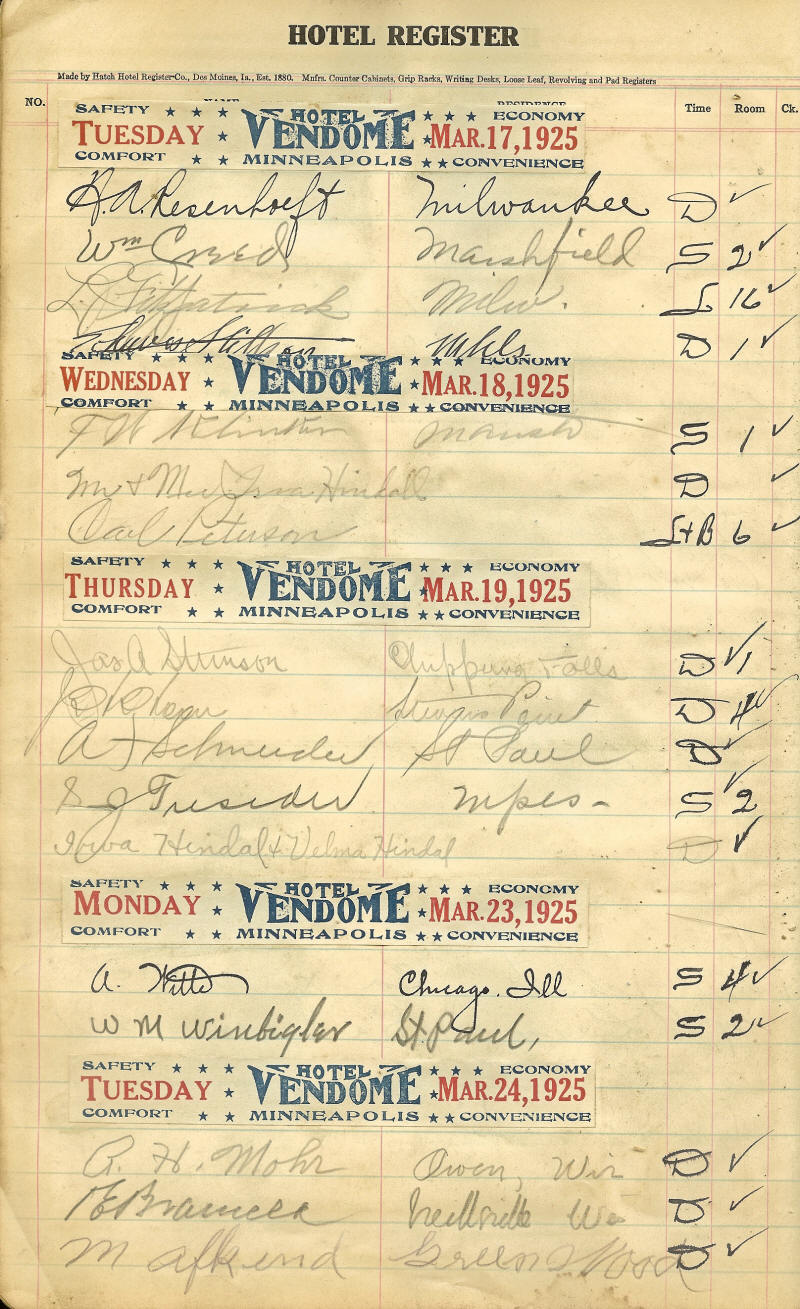 HOTEL REGISTER
Made by Hatch Hotel Register Co., Des Moines, Ia., Est. 1880. Mnfrs. Counter Cabinets, Grip Racks, Writing Desks, Loose Leaf, Revolving and Pad Registers
NO. RESIDENCE Time Room Ck.
SAFETY HOTEL ECONOMY
TUESDAY VENDOME MAR.17,1925
COMFORT MINNEAPOLIS CONVENIENCE
H.A. Resenhoeft Milwaukee D ✓
Wm Creed Marshfield S 2 ✓
L Fitzpatrick Milw. L 16 ✓
Mpls D 1 ✓
SAFETY HOTEL ECONOMY
WEDNESDAY VENDOME MAR.18,1925
COMFORT MINNEAPOLIS CONVENIENCE
F W S 1 ✓
Mr & Mrs Hindall D ✓
Carl Peterson L+B 6 ✓
SAFETY HOTEL ECONOMY
THURSDAY VENDOME MAR.19,1925
COMFORT MINNEAPOLIS CONVENIENCE
Jas A Stinson Chippewa Falls D ✓1
Stevens Point D 4✓
A J Schneider St Paul D ✓
S J Treseder Mpls - S ✓2
Hindal & Velma Hindal D ✓
SAFETY HOTEL ECONOMY
MONDAY VENDOME MAR.23,1925
COMFORT MINNEAPOLIS CONVENIENCE
A. Witte Chicago. Ill S 4✓
W M Winbigler St. Paul, S 2✓
SAFETY HOTEL ECONOMY
TUESDAY VENDOME MAR.24,1925
COMFORT MINNEAPOLIS CONVENIENCE
A. H. Mohr Owen, Wis D ✓
Neillsville Wis D ✓
M Green Wood D ✓